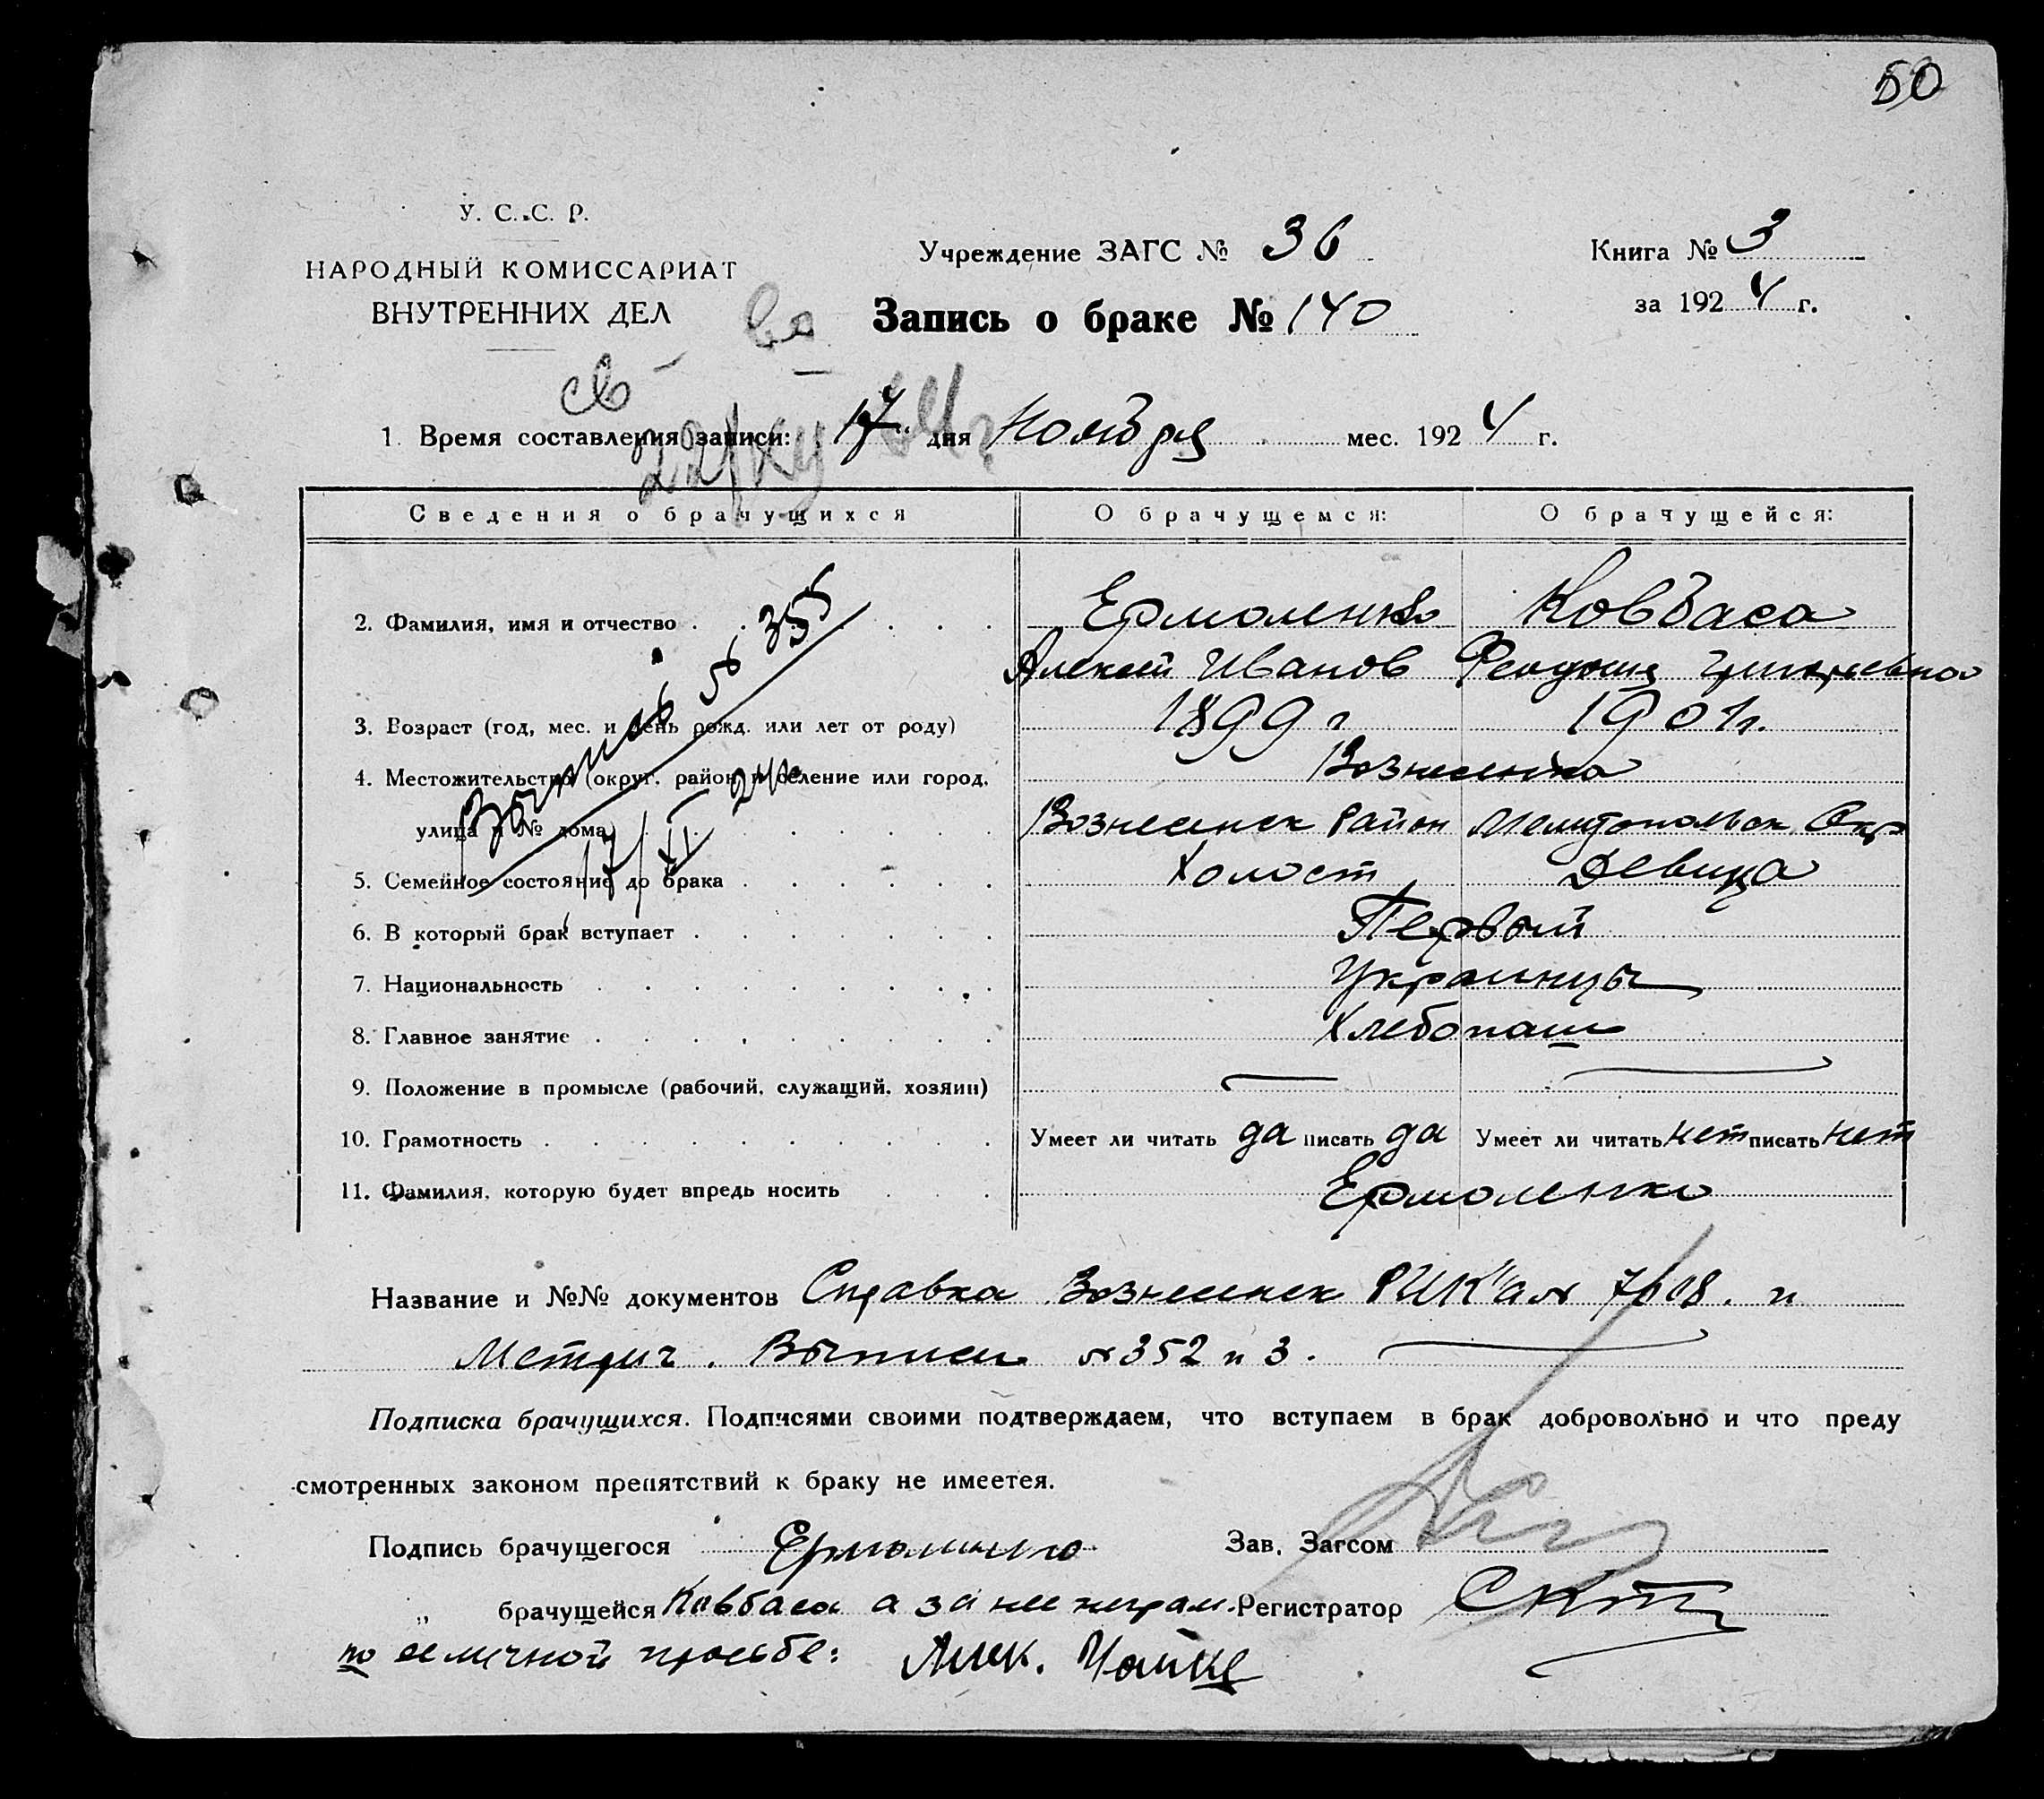 50
У. С. С. Р.
НАРОДНЫЙ КОМИССАРИАТ
ВНУТРЕННИХ ДЕЛ
Учреждение ЗАГС № 36
Книга № 3
за 1924 г.
Запись о браке № 140
1. Время составления записи: 17 дня Ноября мес. 1924 г.
Сведения о брачущихся
О брачущемся:
О брачущейся:
2. Фамилия, имя и отчество
Ермоленко
Ковбаса
Алексей Иванов
3. Возраст (год, мес. и день рожд. или лет от роду)
1899 г
1901 г.
4. Местожительство (округ, район и селение или город,
Вознесенка
улица и № дома)
Вознесенск Район Мелитопольск Окр
5. Семейное состояние до брака
Холост
Девица
6. В который брак вступает
Первый
7. Национальность
Украинцы
8. Главное занятие
Хлебопаш
9. Положение в промысле (рабочий, служащий, хозяин)
10. Грамотность
Умеет ли читать да писать да
Умеет ли читать нет писать нет
11. Фамилия, которую будет впредь носить
Ермоленко
Название и №№ документов Справка Вознесенск РИК'а № 7618. и
Метрич. Выписи № 352 и 3.
Подписка брачущихся. Подписями своими подтверждаем, что вступаем в брак добровольно и что преду
смотренных законом препятствий к браку не имеетея.
Подпись брачущегося Ермоленко
Зав. Загсом
„ брачущейся Ковбаса а за нее неграм.
Регистратор
по ее личной просьбе: